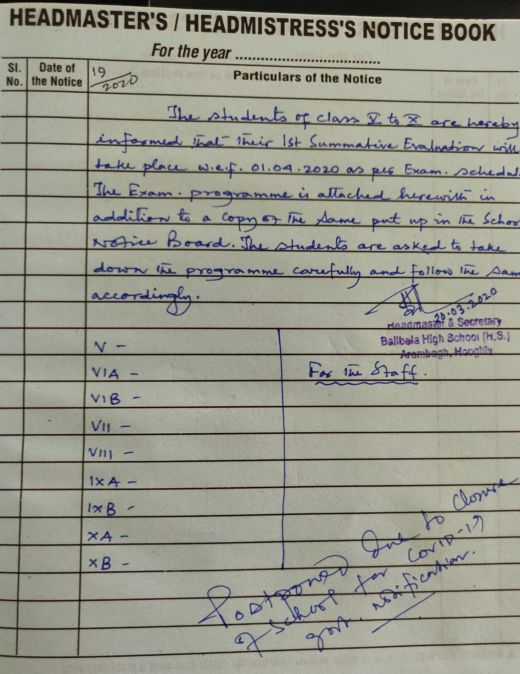 HEADMASTER'S / HEADMISTRESS'S NOTICE BOOK
For the year ........................................
Sl. No.
Date of the Notice
19/2020
Particulars of the Notice
The students of class V to X are hereby
informed that their 1st Summative Evaluation will
take place w.e.f. 01.04.2020 as per Exam. schedul
The Exam. programme is attached herewith in
addition to a copy of the same put up in the School
Notice Board. The students are asked to take
down the programme carefully and follow the sam
accordingly.
20.03.2020
Headmaster & Secretary
Balibela High School (H.S.)
Arambagh, Hooghly
V -
VI A -
VI B -
VII -
VIII -
IX A -
IX B -
X A -
X B -
For the Staff.
Postponed due to closure
of School for COVID-19
govt. notification.